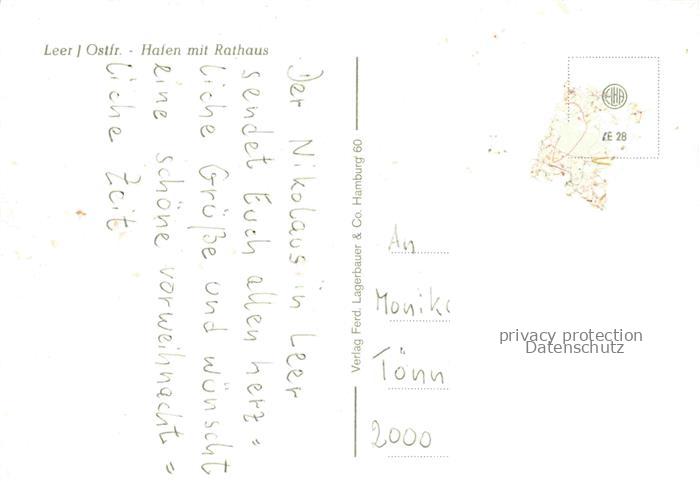 Leer / Ostfr. - Hafen mit Rathaus
Der Nikolaus in Leer
sendet Euch allen herz=
liche Grüße und wünscht
eine schöne vorweihnacht=
liche Zeit
Verlag Ferd. Lagerbauer & Co. Hamburg 60
LE 28
An
Monik
Tönn
2000
privacy protection
Datenschutz